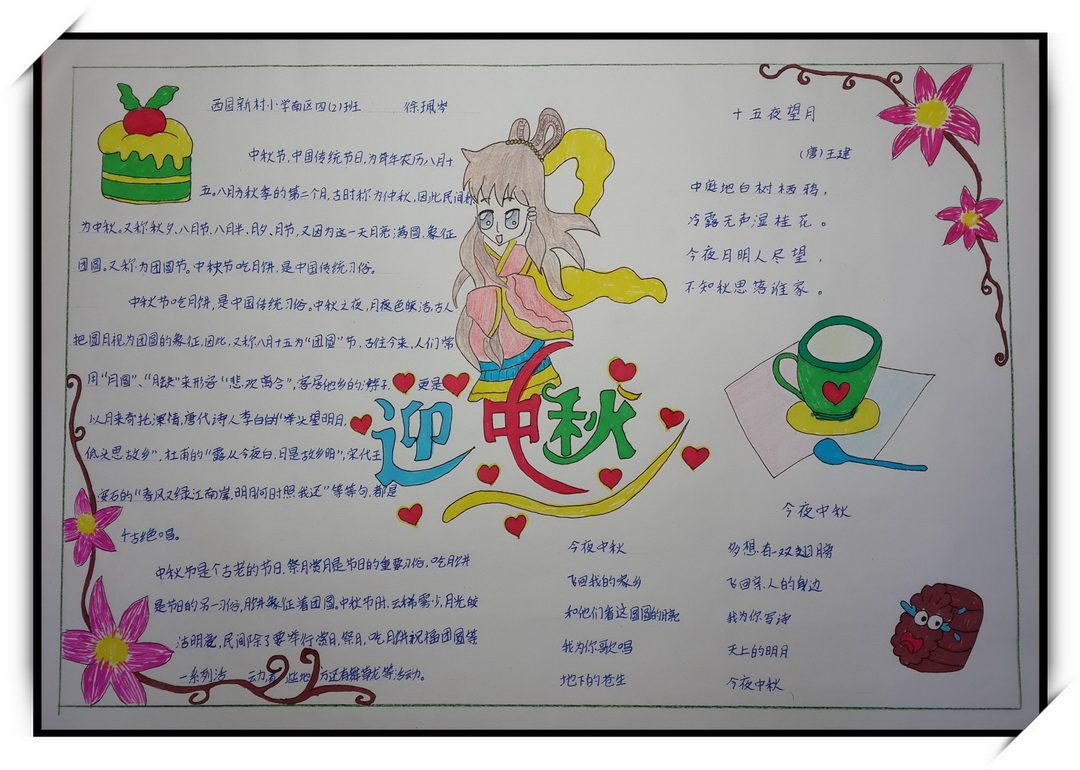 西园新村小学南区四(2)班 徐珮岑
中秋节,中国传统节日,为每年农历八月十
五。八月为秋季的第二个月,古时称为仲秋,因此民间称
为中秋。又称秋夕、八月节、八月半、月夕、月节,又因为这一天月亮满圆,象征
团圆。又称为团圆节。中秋节吃月饼,是中国传统习俗。
中秋节吃月饼,是中国传统习俗。中秋之夜,月色皎洁,古人
把圆月视为团圆的象征,因此,又称八月十五为“团圆”节,古往今来,人们常
用“月圆”、“月缺”来形容“悲欢离合”,客居他乡的游子,更是
以月来寄托深情,唐代诗人李白的“举头望明月,
低头思故乡”,杜甫的“露从今夜白,月是故乡明”,宋代王
安石的“春风又绿江南岸,明月何时照我还”等等句,都是
千古绝唱。
中秋节是个古老的节日,祭月赏月是节日的重要习俗,吃月饼
是节日的另一习俗,月饼象征着团圆,中秋节时,云稀雾少,月光皎
洁明亮,民间除了要举行赏月,祭月,吃月饼祝福团圆等
一系列活动,有些地方还有舞草龙等活动。
迎中秋
十五夜望月
(唐)王建
中庭地白树栖鸦,
冷露无声湿桂花。
今夜月明人尽望,
不知秋思落谁家。
今夜中秋
今夜中秋
飞回我的家乡
和他们看这圆圆的月亮
我为你歌唱
地下的苍生
多想有一双翅膀
飞回亲人的身边
我为你写诗
天上的明月
今夜中秋